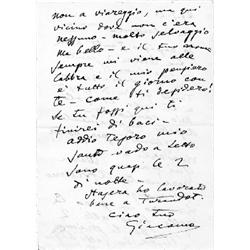 non a viareggio, ma qui
vicino dove non c'era
nessuno - molto selvaggio
ma bello - e il tuo nome
sempre mi viene alle
labbra e il mio pensiero
è tutto il giorno con
te - come ti desidero!
Se tu fossi qui ti
finirei di baci -
addio Tesoro mio
vado a letto
sono quasi le 2
di notte -
ho lavorato
bene a Turandot.
ciao tuo
Giacomo